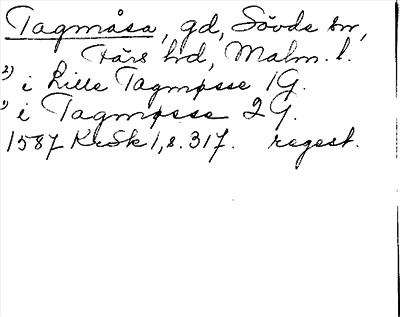 Tagmåsa, gd, Sövde sn,
Färs hd, Malm. l.
2) i Lille Tagmosse 1G.
1) i Tagmosse 2G.
1587 KrSk 1, s. 317. regest.